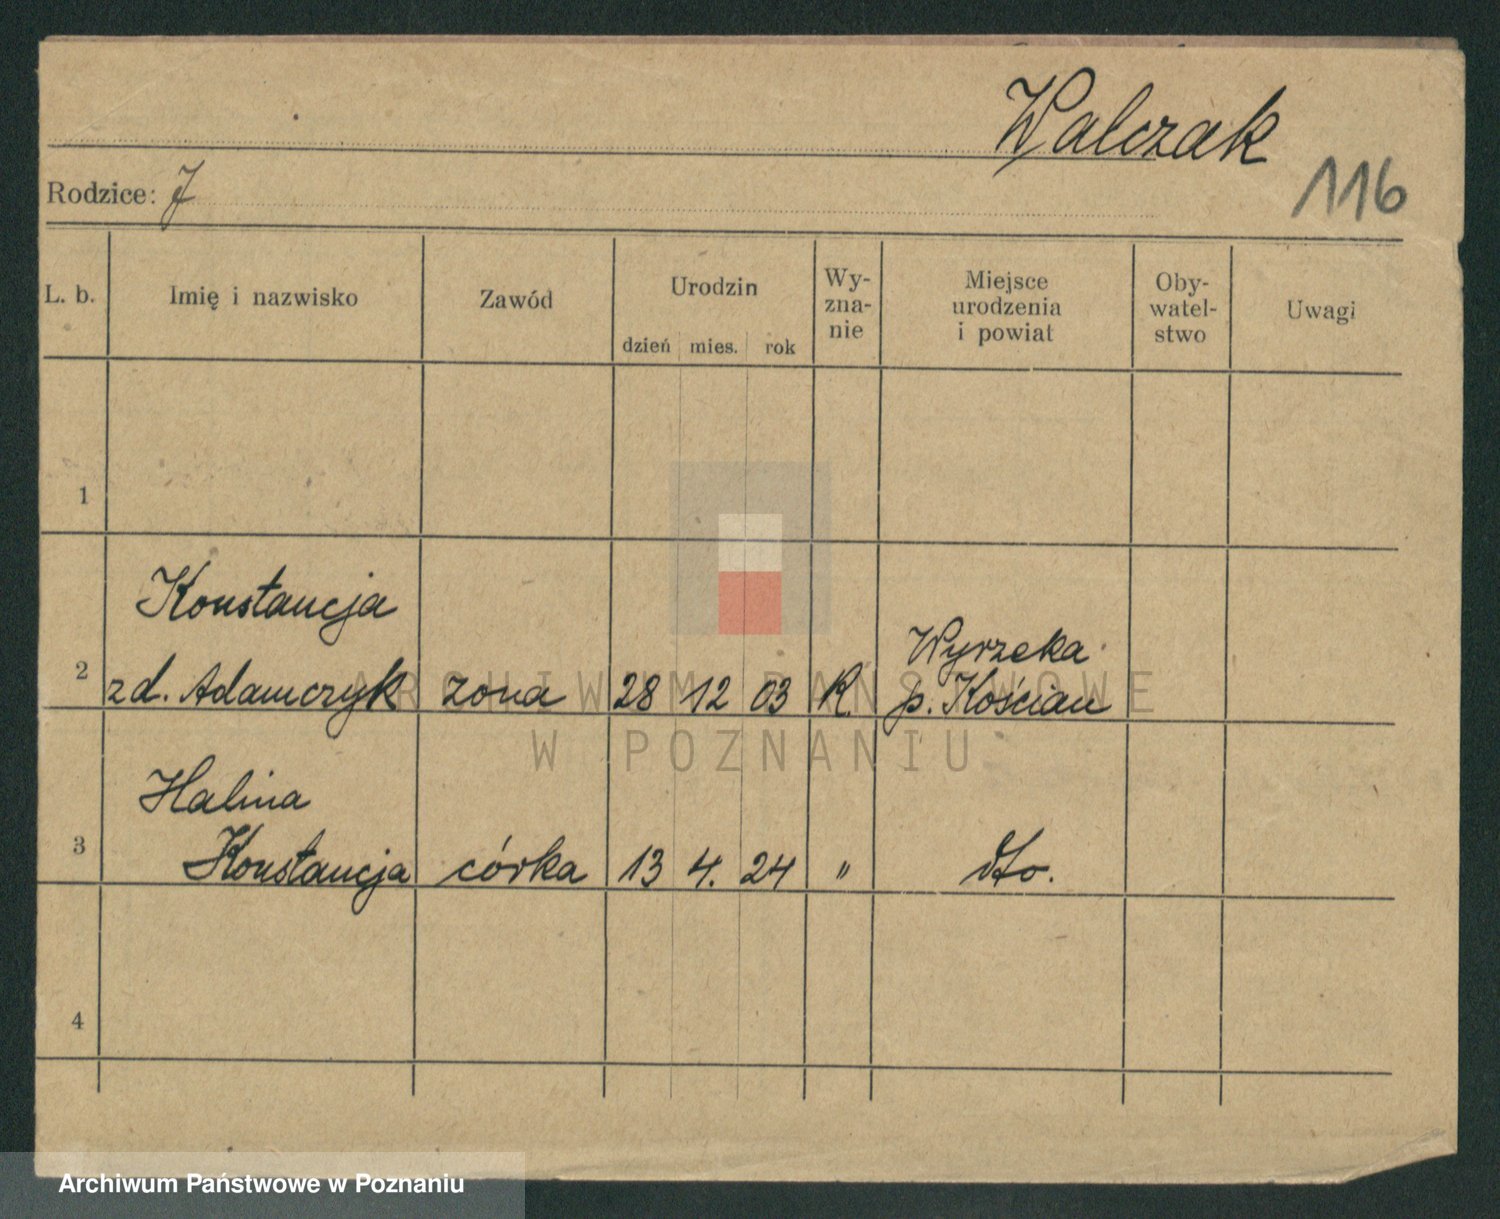 Walczak
116
Rodzice: J
L. b. Imię i nazwisko Zawód Urodzin dzień mies. rok Wy-zna-nie Miejsce urodzenia i powiat Oby-watel-stwo Uwagi
1
Konstancja
Wyrzeka
2 zd. Adamczyk żona 28 12 03 R. p. Kościan
Halina
3 Konstancja córka 13 4. 24 " dto.
4
ARCHIWUM PAŃSTWOWE
W POZNANIU
Archiwum Państwowe w Poznaniu